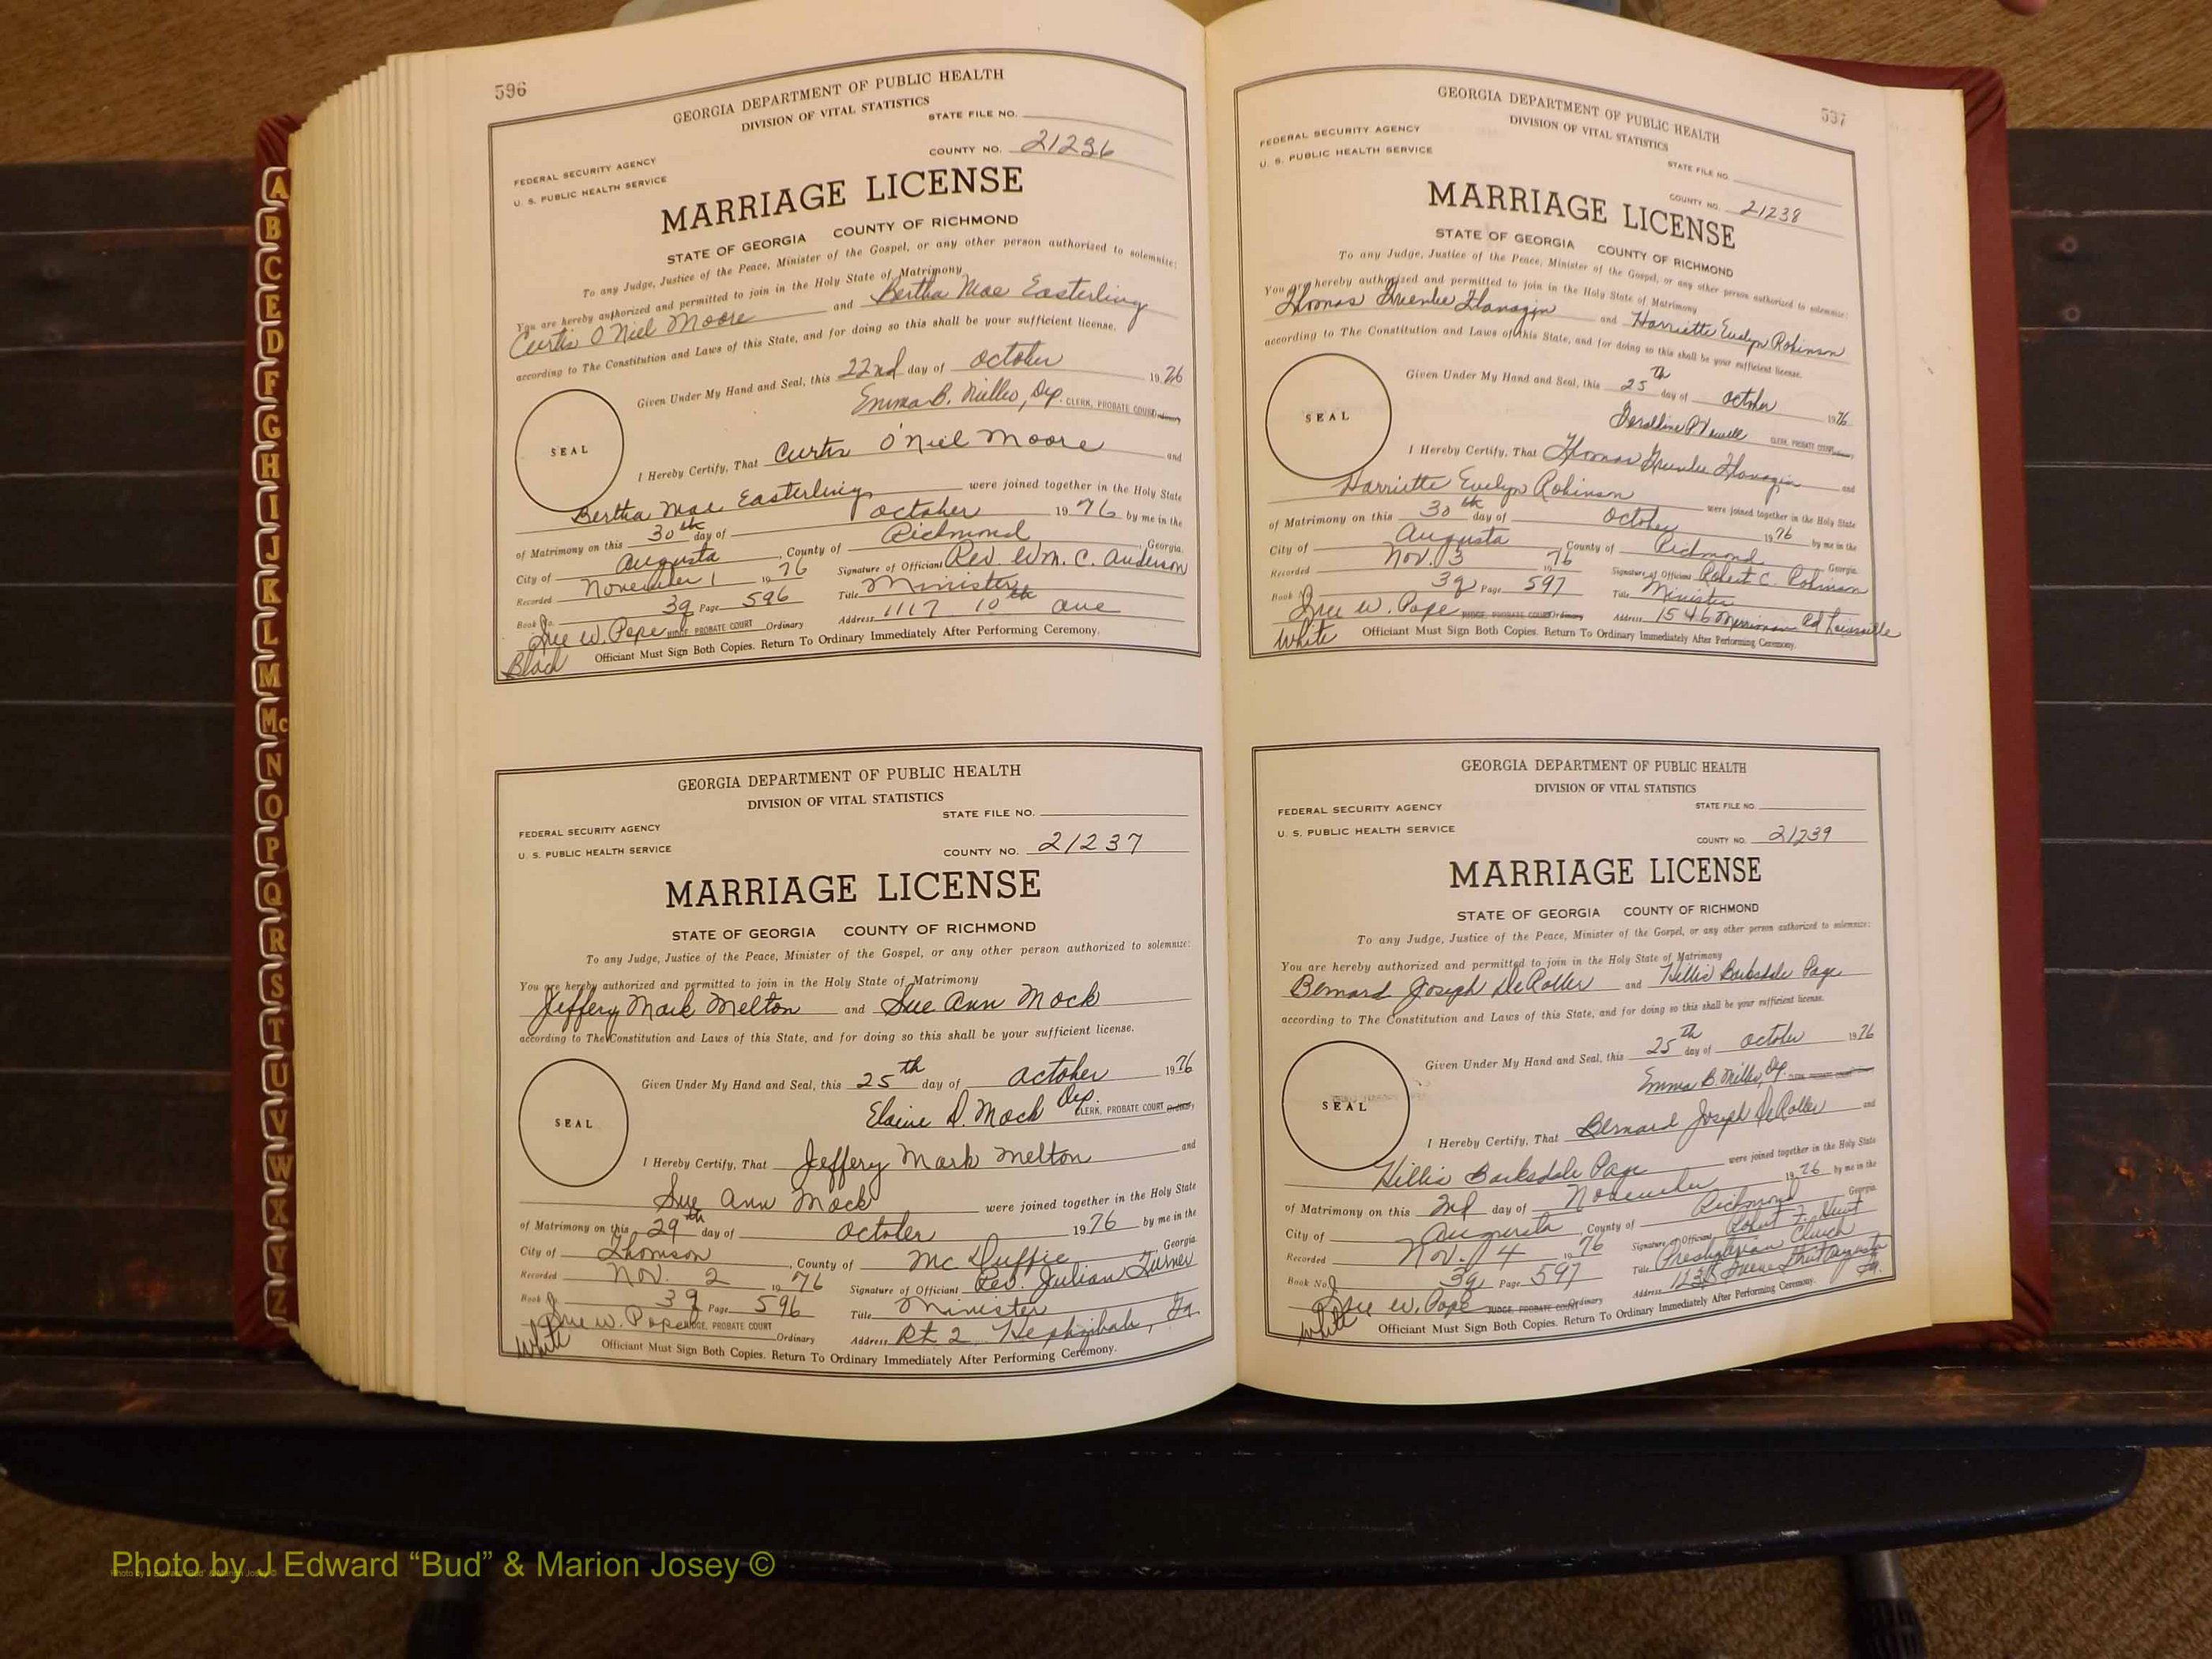 596
GEORGIA DEPARTMENT OF PUBLIC HEALTH
DIVISION OF VITAL STATISTICS
STATE FILE NO.
COUNTY NO. 21236
FEDERAL SECURITY AGENCY
U. S. PUBLIC HEALTH SERVICE
MARRIAGE LICENSE
STATE OF GEORGIA COUNTY OF RICHMOND
To any Judge, Justice of the Peace, Minister of the Gospel, or any other person authorized to solemnize:
You are hereby authorized and permitted to join in the Holy State of Matrimony
Curtis O'Niel Moore and Bertha Mae Easterling
according to The Constitution and Laws of this State, and for doing so this shall be your sufficient license.
Given Under My Hand and Seal, this 22nd day of October 1976
Emma B. Dep. CLERK, PROBATE COURT Ordinary
SEAL
I Hereby Certify, That Curtis O'Niel Moore and
Bertha Mae Easterling were joined together in the Holy State
of Matrimony on this 30th day of October 1976 by me in the
City of Augusta, County of Richmond, Georgia.
Recorded November 1 1976 Signature of Officiant Rev. Wm. C. Anderson
Book No. 3q Page 596 Title Minister
Sue W. Pope JUDGE, PROBATE COURT Ordinary Address 1117 10th ave
Officiant Must Sign Both Copies. Return To Ordinary Immediately After Performing Ceremony.
Black
GEORGIA DEPARTMENT OF PUBLIC HEALTH
DIVISION OF VITAL STATISTICS
STATE FILE NO.
FEDERAL SECURITY AGENCY
U. S. PUBLIC HEALTH SERVICE
COUNTY NO. 21237
MARRIAGE LICENSE
STATE OF GEORGIA COUNTY OF RICHMOND
To any Judge, Justice of the Peace, Minister of the Gospel, or any other person authorized to solemnize:
You are hereby authorized and permitted to join in the Holy State of Matrimony
Jeffery Mark Melton and Sue Ann Mock
according to The Constitution and Laws of this State, and for doing so this shall be your sufficient license.
Given Under My Hand and Seal, this 25th day of October 1976
Elaine D. Mock Dep. CLERK, PROBATE COURT Ordinary
SEAL
I Hereby Certify, That Jeffery Mark Melton and
Sue Ann Mock were joined together in the Holy State
of Matrimony on this 29th day of October 1976 by me in the
City of Thomson, County of Mc Duffie, Georgia.
Recorded Nov. 2 1976 Signature of Officiant Rev. Julian Turner
Book 3q Page 596 Title Minister
Sue W. Pope JUDGE, PROBATE COURT Ordinary Address Rt 2 Hephzibah, Ga.
Officiant Must Sign Both Copies. Return To Ordinary Immediately After Performing Ceremony.
White
597
GEORGIA DEPARTMENT OF PUBLIC HEALTH
DIVISION OF VITAL STATISTICS
FEDERAL SECURITY AGENCY
U. S. PUBLIC HEALTH SERVICE
STATE FILE NO.
COUNTY NO. 21238
MARRIAGE LICENSE
STATE OF GEORGIA COUNTY OF RICHMOND
To any Judge, Justice of the Peace, Minister of the Gospel, or any other person authorized to solemnize:
You are hereby authorized and permitted to join in the Holy State of Matrimony
Thomas Flanagin and Harriette Evelyn Robinson
according to The Constitution and Laws of this State, and for doing so this shall be your sufficient license.
Given Under My Hand and Seal, this 25th day of October 1976
Geraldine P. CLERK, PROBATE COURT Ordinary
SEAL
I Hereby Certify, That Thomas Flanagin and
Harriette Evelyn Robinson were joined together in the Holy State
of Matrimony on this 30th day of October 1976 by me in the
City of Augusta County of Richmond, Georgia.
Recorded Nov. 3 1976 Signature of Officiant Robert C. Robinson
Book No. 3q Page 597 Title Minister
Sue W. Pope JUDGE, PROBATE COURT Ordinary Address 1546 Merriman Rd
Officiant Must Sign Both Copies. Return To Ordinary Immediately After Performing Ceremony.
White
GEORGIA DEPARTMENT OF PUBLIC HEALTH
DIVISION OF VITAL STATISTICS
STATE FILE NO.
FEDERAL SECURITY AGENCY
U. S. PUBLIC HEALTH SERVICE
COUNTY NO. 21239
MARRIAGE LICENSE
STATE OF GEORGIA COUNTY OF RICHMOND
To any Judge, Justice of the Peace, Minister of the Gospel, or any other person authorized to solemnize:
You are hereby authorized and permitted to join in the Holy State of Matrimony
Bernard Joseph DeRoller and Hillis Barksdale Page
according to The Constitution and Laws of this State, and for doing so this shall be your sufficient license.
Given Under My Hand and Seal, this 25th day of October 1976
Emma B. Dep. CLERK, PROBATE COURT Ordinary
SEAL
I Hereby Certify, That Bernard Joseph DeRoller and
Hillis Barksdale Page were joined together in the Holy State
of Matrimony on this 2nd day of November 1976 by me in the
City of Augusta, County of Richmond Georgia.
Recorded Nov. 4 1976 Signature of Officiant Robert
Book No. 3q Page 597 Title Presbyterian Church
Sue W. Pope JUDGE, PROBATE COURT Ordinary Address Greene Street Augusta Ga.
Officiant Must Sign Both Copies. Return To Ordinary Immediately After Performing Ceremony.
White
A
B
C
E
D
F
G
H
I
J
K
L
M
Mc
N
O
P
Q
R
S
T
U
V
W
X
Y
Z
Photo by J Edward “Bud” & Marion Josey ©